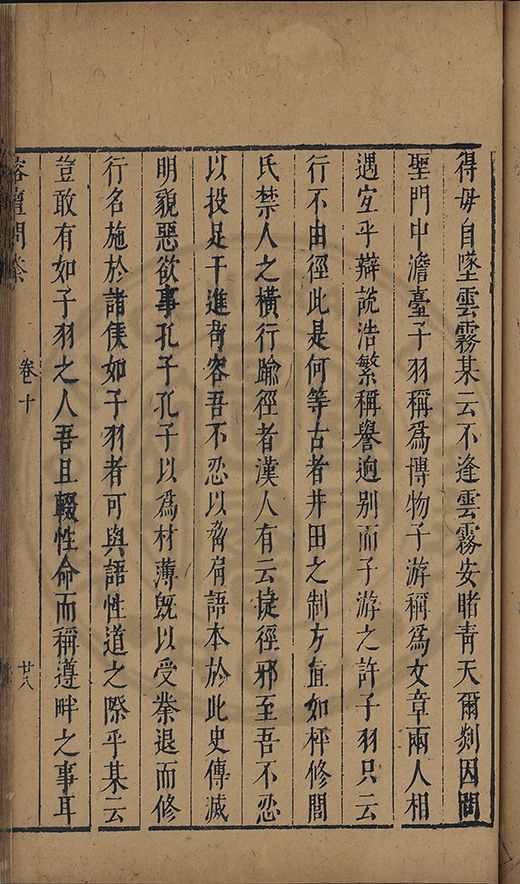 得毋自墜雲霧某云不逢雲霧安睹青天爾剡因問
聖門中澹臺子羽稱爲博物子游稱爲文章兩人相
遇宜乎辯說浩繁稱譽逈别而子游之許子羽只云
行不由徑此是何等古者井田之制方直如枰修閭
氏禁人之橫行踰徑者漢人有云捷徑邪至吾不忍
以投足干進苟容吾不忍以脅肩語本於此史傳滅
明貌惡欲事孔子孔子以爲材薄旣以受業退而修
行名施於諸侯如子羽者可與語性道之際乎某云
豈敢有如子羽之人吾且輟性命而稱遵畔之事耳
榕壇問業
卷十
廿八